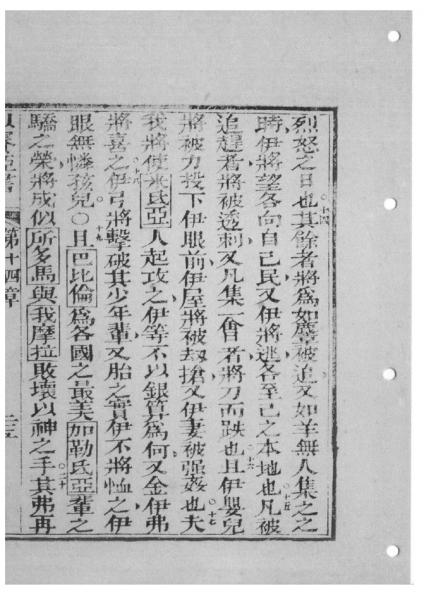 烈怒之日也十四其餘者將爲如麞被追又如羊無人集之之
時伊將望各向自己民又伊將逃各至己之本地也十五凡被
追趕者將被透刺又凡集一會者將刀而跌也十六且伊嬰兒
將被力投下伊眼前伊屋將被刼搶又伊妻被强姦也十七夫
我將使米氐亞人起攻之伊等不以銀算爲何又金伊弗
將喜之十八伊弓將擊破其少年輩又胎之實伊不將恤之伊
眼無憐孩兒○十九且巴比倫爲各國之最美加勒氐亞輩之
驕之榮將成似所多馬與我摩拉敗壞以神之手二十其弗再
以賽亞書 第十四章